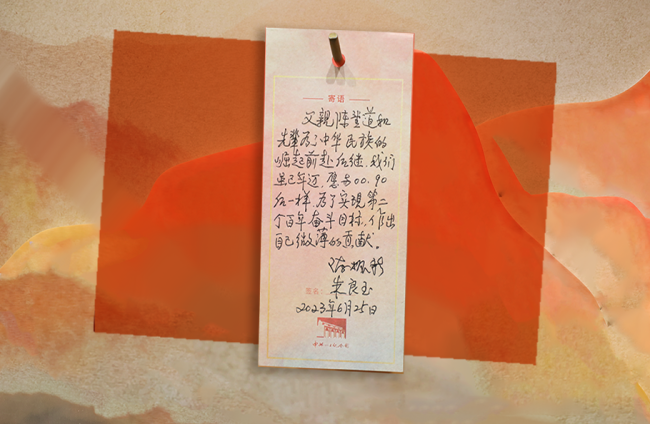 寄语
父亲陈望道和
先辈为了中华民族的
崛起前赴后继,我们
虽已年迈,愿与00.90
后一样,为了实现第二
个百年奋斗目标,作出
自己微薄的贡献。
陈振新
朱良玉
2023年6月25日